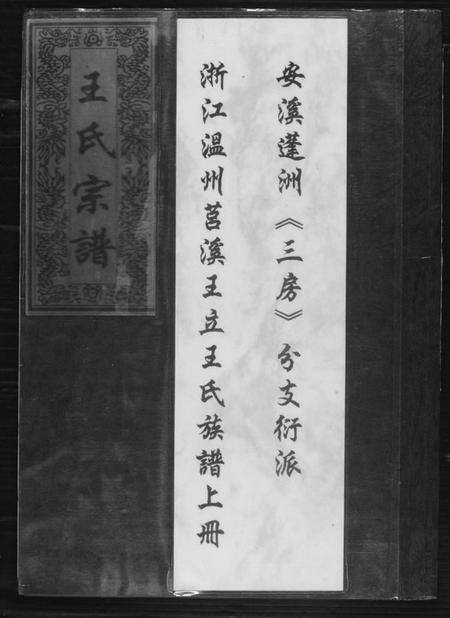 安溪蓬洲《三房》分支衍派
浙江温州莒溪王立王氏族譜上冊
王氏宗譜